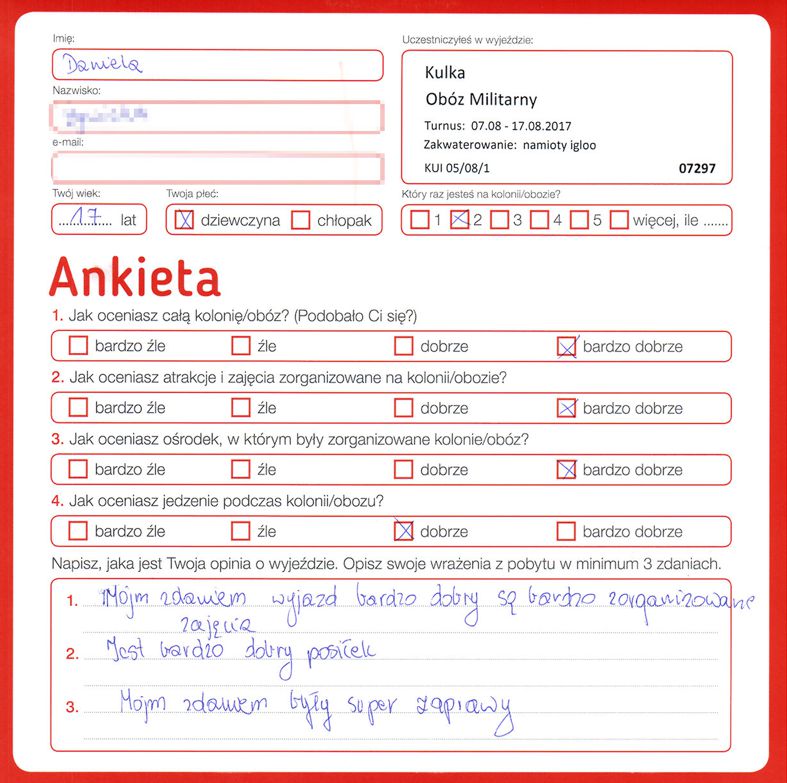 Imię:
Daniela
Nazwisko:
e-mail:
Twój wiek:
17 lat
Twoja płeć:
dziewczyna chłopak
Uczestniczyłeś w wyjeździe:
Kulka
Obóz Militarny
Turnus: 07.08 - 17.08.2017
Zakwaterowanie: namioty igloo
KUI 05/08/1 07297
Który raz jesteś na kolonii/obozie?
1 2 3 4 5 więcej, ile .......
Ankieta
1. Jak oceniasz całą kolonię/obóz? (Podobało Ci się?)
bardzo źle źle dobrze bardzo dobrze
2. Jak oceniasz atrakcje i zajęcia zorganizowane na kolonii/obozie?
bardzo źle źle dobrze bardzo dobrze
3. Jak oceniasz ośrodek, w którym były zorganizowane kolonie/obóz?
bardzo źle źle dobrze bardzo dobrze
4. Jak oceniasz jedzenie podczas kolonii/obozu?
bardzo źle źle dobrze bardzo dobrze
Napisz, jaka jest Twoja opinia o wyjeździe. Opisz swoje wrażenia z pobytu w minimum 3 zdaniach.
1. Mójm zdaniem wyjazd bardzo dobry są bardzo zorganizowane
zajęcia
2. Jest bardzo dobry posiłek
3. Mójm zdaniem były super zaprawy